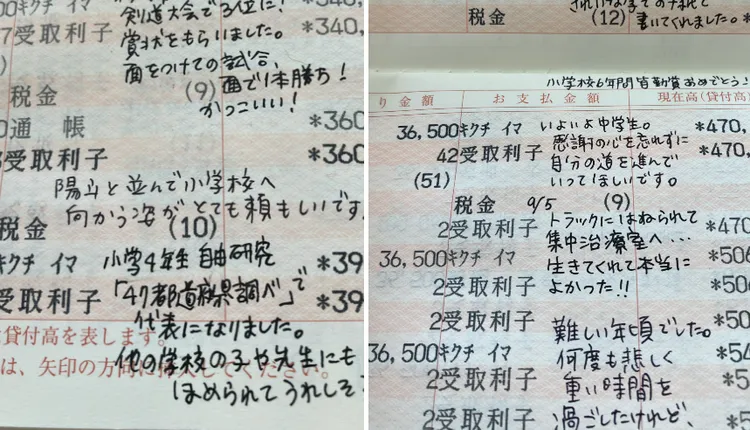 剣道大会で3位に!
キクチ イマ
*340,
受取利子
賞状をもらいました。
*340,
面をつけての試合、
税金
(9)
面で1本勝ち!
かっこいい!
通 帳
*360
受取利子
*360
陽斗と並んで小学校へ
向かう姿がとても頼もしいです。
税金
(10)
キクチ イマ
小学4年生 自由研究
*39
受取利子
「47都道府県調べ」で
*39
代表になりました。
貸付高を表します。
は、矢印の方向に
他の学校の子や先生にも
ください。
ほめられてうれしそ
税金
(12)
書いてくれました。
小学校6年間皆勤賞おめでとう!
り金額
お支払金額
現在高(貸付高)
36,500キクチ イマ
いよいよ中学生。
*470,
感謝の心を忘れずに
42受取利子
*470,
自分の道を進んで
(51)
いってほしいです。
税金
9/5
(9)
トラックにはねられて
2受取利子
*470
集中治療室へ…
36,500キクチ イマ
*506
生きてくれて本当に
2受取利子
*506
よかった!!
2受取利子
*50
難しい年頃でした。
36,500キクチ イマ
*54
何度も悲しく
2受取利子
*5
重い時間を
2受取利子
過ごしたけれど、